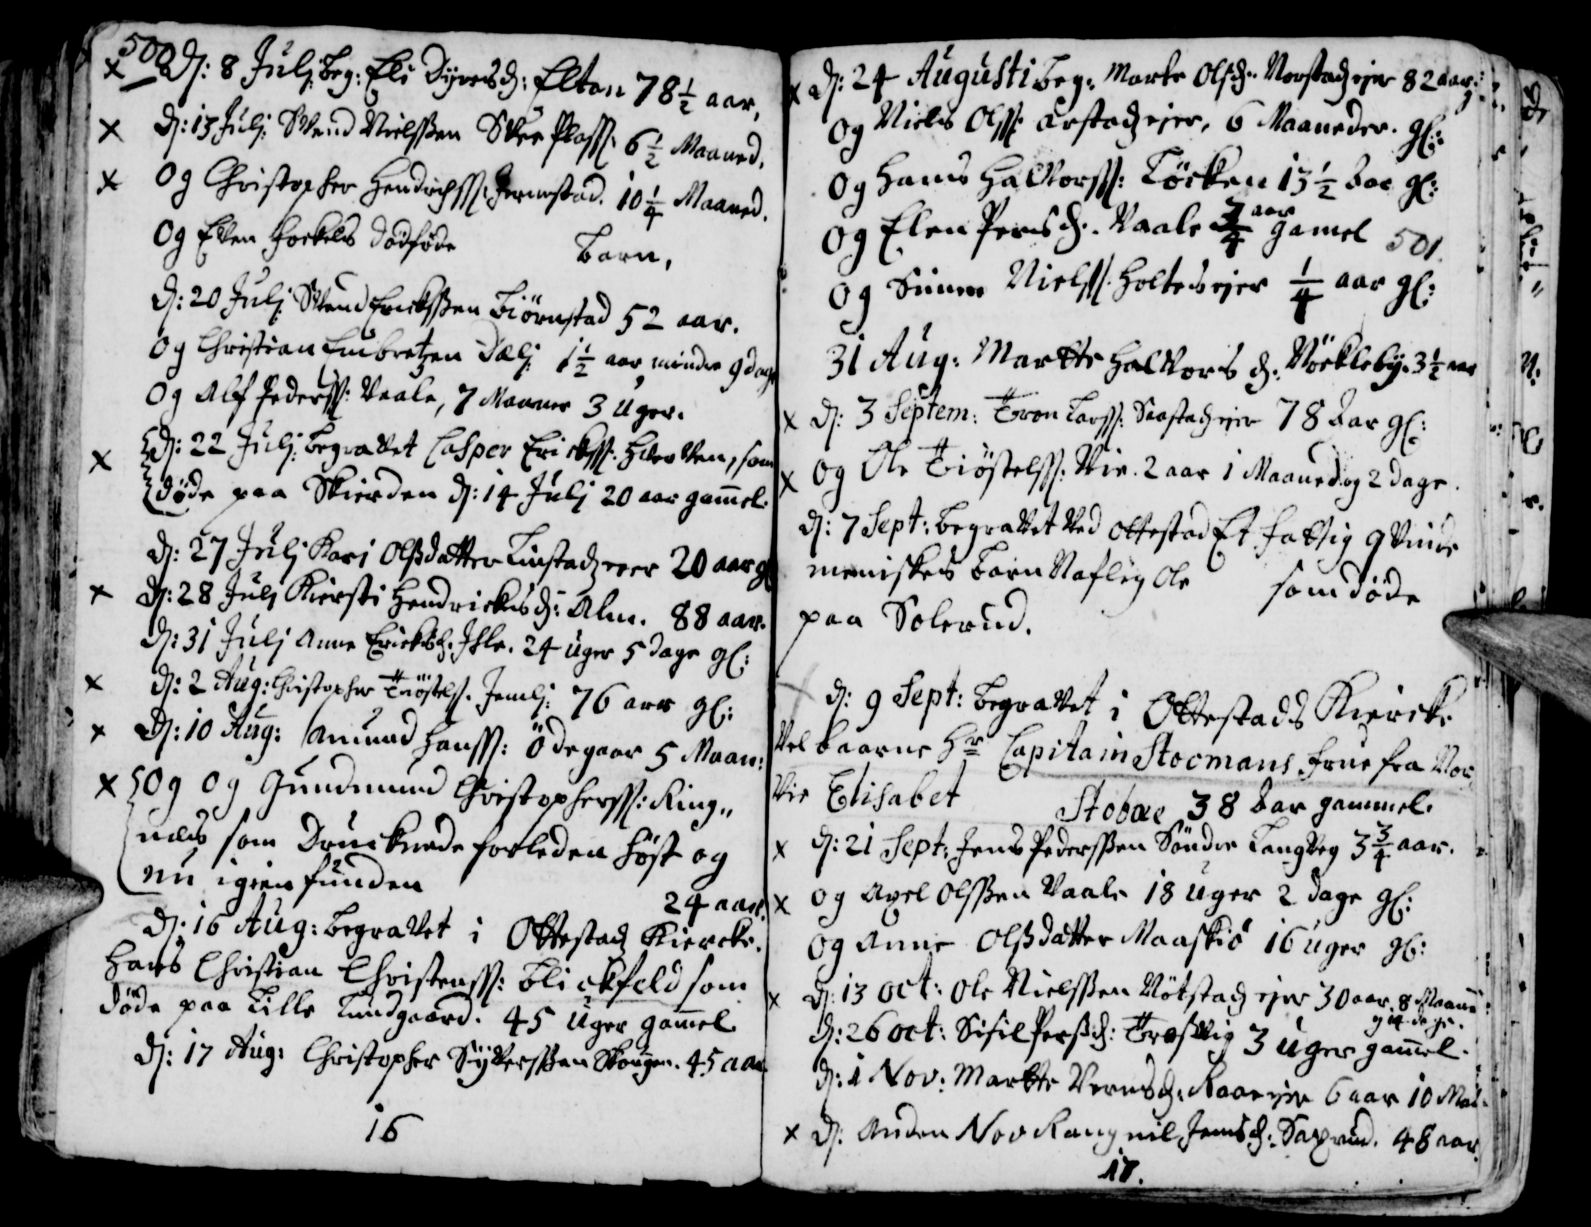 500
x D: 8 Julj beg: Eli Dyresd: Elton 78 1/2 aar,
x D: 13 Julj Svend Nielssen Skee Plass: 6 1/2 Maaned.
x Og Christopher Hendrichss: Jermstad. 10 1/4 Maaned.
Og Ellen Torkels dødføde Barn,
D: 20 Julj Svend Erickssen Biørnstad 52 aar.
Og Christian Embretzen Dælj 1 1/2 aar mindre 9 dage
Og Alf Pederss: Vaale, 7 Maaner 3 Uger.
x D: 22 Julj begravet Casper Erickss: , som
døde paa Skierden D: 14 Julj 20 aar gamel.
D: 27 Julj Kari Olsdatter ejer 20 aar gl
x D: 28 Julj Kiersti Hendricksd: Alm. 88 aar.
D: 31 Julj Anne Ericksd. Ihle. 24 Uger 5 dage gl:
x D: 2 Aug: Christopher Tiøstels. Jemlj: 76 aar gl:
x D: 10 Aug: Amund Hanss: Ødegaar 5 Maan:
x Og og Gundmund Christopherss: Ring„
næs som Drucknede forleden Høst og
nu igien funden 24 aar.
D: 16 Aug: begravet i Ottestad Kiercke.
Hans Christian Christenss: Blickfeld som
døde paa Lille Lundgaard. 45 Uger gamel.
D: 17 Aug: Christopher Syverssen Skougen. 45 aar
16
x D: 24 Augusti beg: Marte Olsd. ejer 82 aar.
Og Niels Olss: ejer, 6 Maaneder. gl:
Og Hans Halvorss: Løcken 13 1/2 Aar gl:
Og Elen Persd. Vaale 3/4 aar gamel
501.
Og Simen Nielss. Holtes ejer 1/4 aar gl:
31 Aug: Martte Halvorsd: Nøckleby. 3 1/2 aar
x D: 3 Septem: Tron Larss: ejer 78 Aar gl:
x Og Ole Tiøstelss: Vie. 2 aar 1 Maaned og 2 dage.
D: 7 Sept: begravet ved Ottestad Et fattig qvinde
menniskes barn Nafnlig Ole som døde
paa Solerud.
D: 9 Sept: begravet i Ottestads Kiercke
Velbaarne Hr Capitain Stocmans frue fra Nor
Vie Elisabet Stobæe 38 Aar gammel.
x D: 21 Sept: Jens Pederssen Søndre Langveg 3 3/4 aar.
x Og Axel Olssen Vaale 18 Uger 2 dage gl:
Og Anne Olsdatter Maaskiø 16 Uger gl:
x D: 13 Oct: Ole Nielssen ejer 30 aar. 8 Maan:
og 14 dage.
D: 26 Oct: Sisil Persd: 3 Uger gamel.
D: 1 Nov: Martte ejer 6 aar 10 Maa:
x D: Anden Nov Rangnil Jensd: Saxrud. 48 aar.
17.